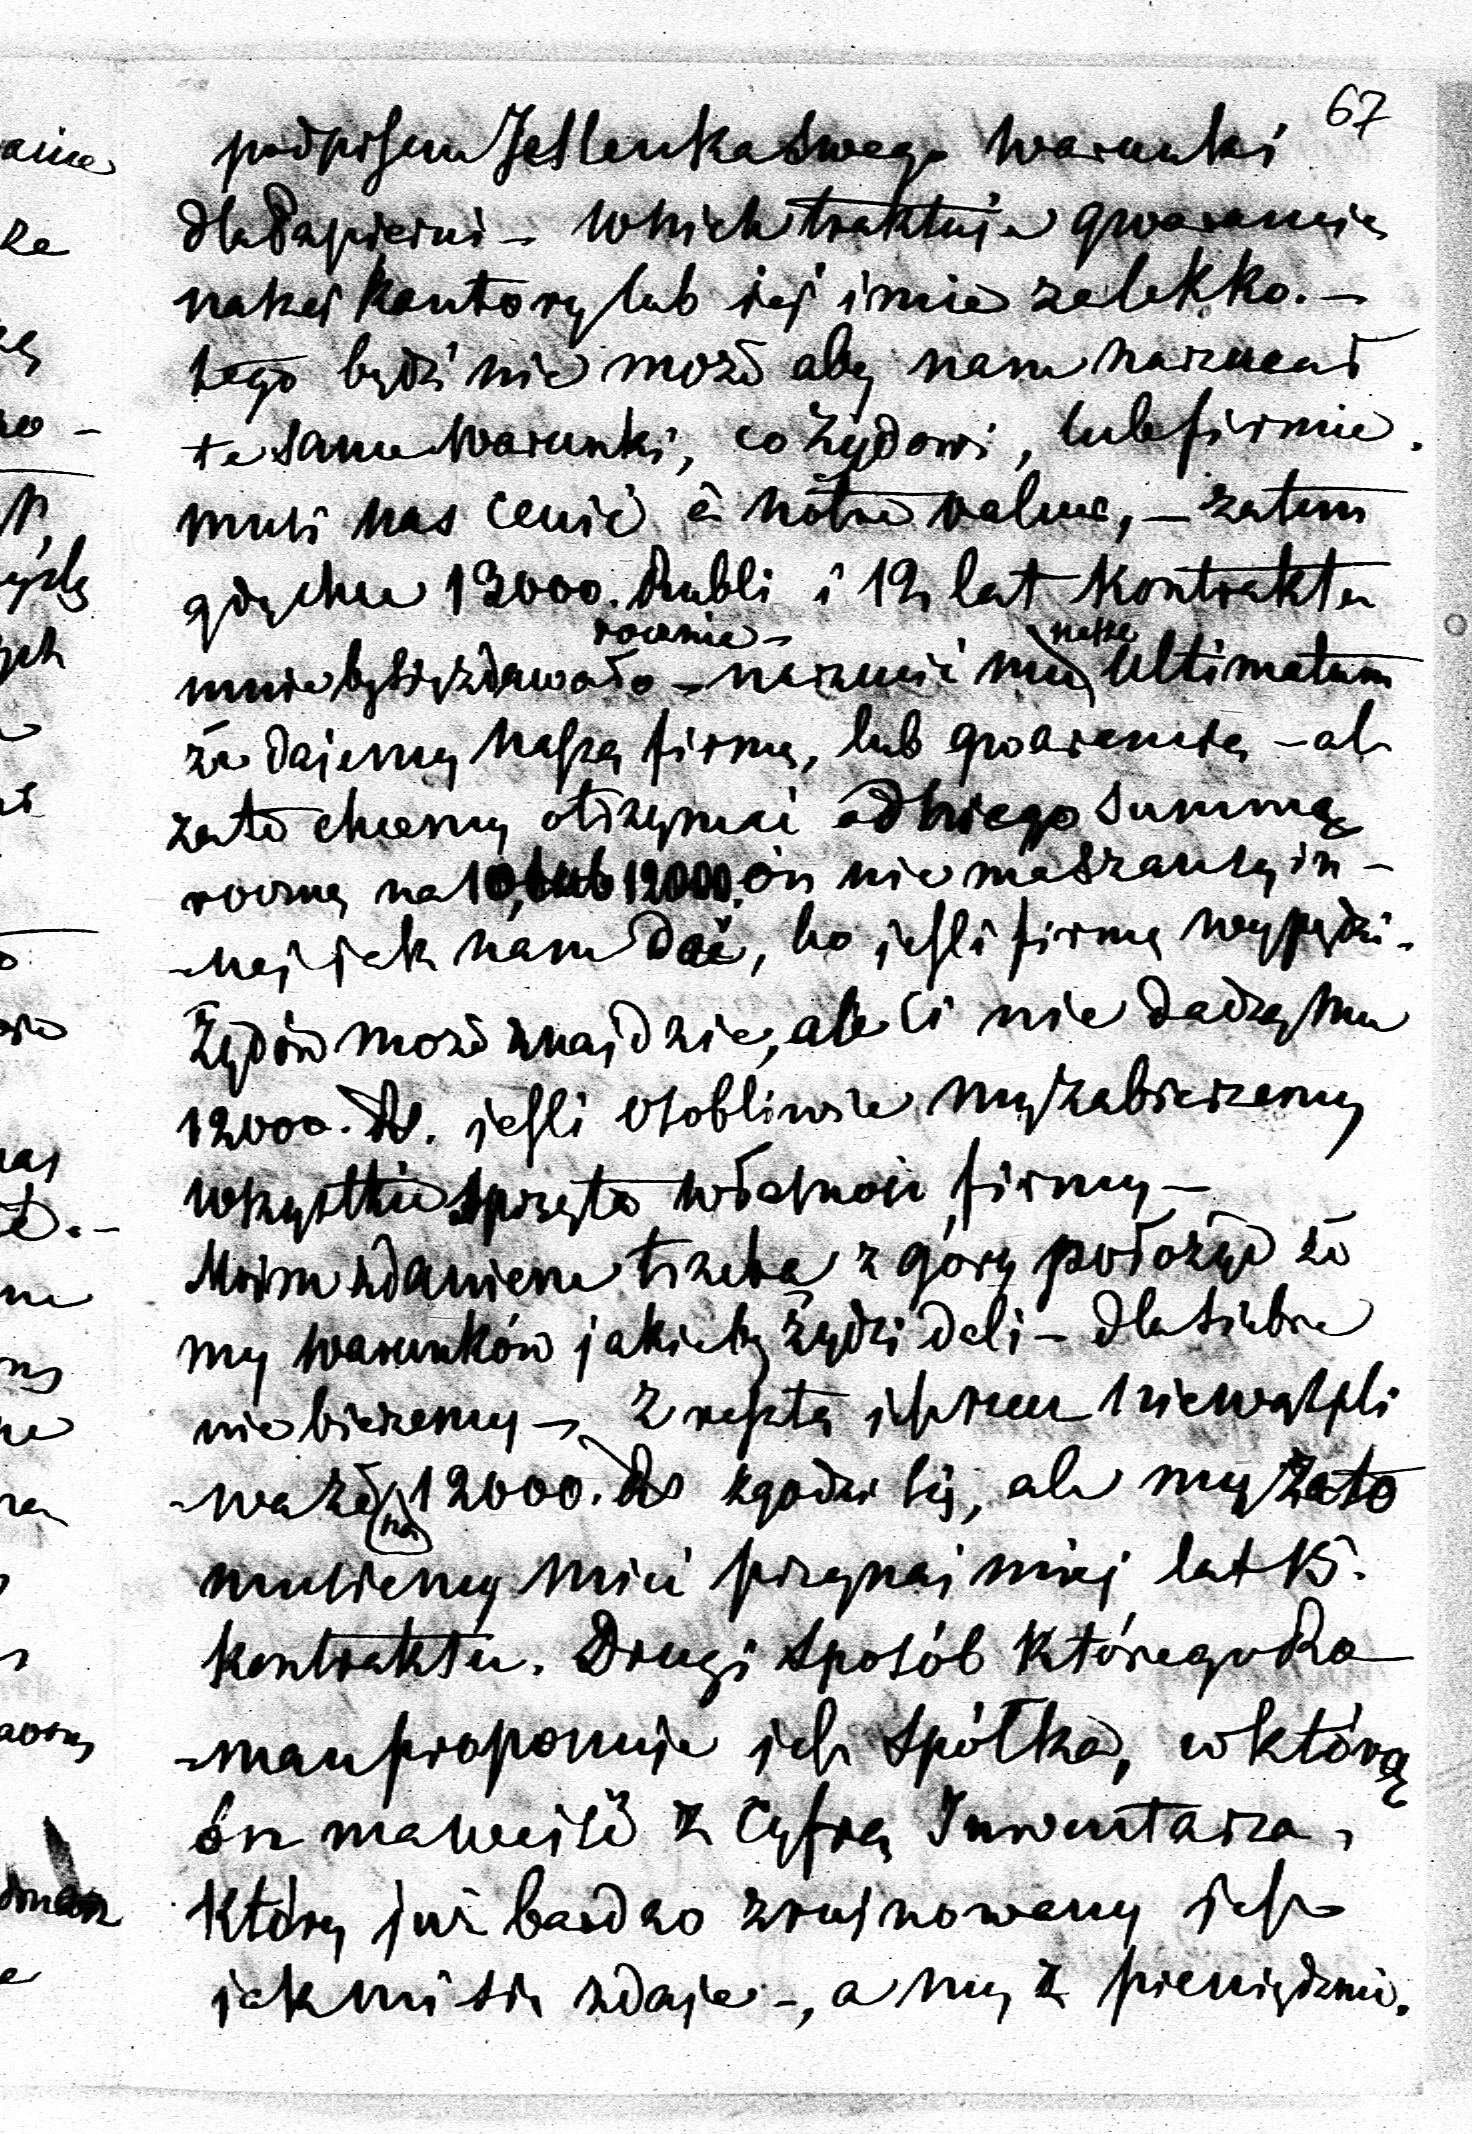 67
podpisem Jellenka swego warunki
dla Papierni – w nich traktuje gwarancie
naszej kantory lub jej imie za lekko. –
tego bydź nie może aby nam narzucał
te same warunki, co Żydowi, lub firmie.
musi nas cenić à nôtre valeur, – zatem
gdy chce 13000. Rubli i 12 lat kontraktu
rocznie –
nasze
mnie by się zdawało – narzucić mu Ultimatum
że dajemy naszą firmę, lub gwarancią – ale
zato chcemy otrzymać od niego summę
roczną na 10, lub 12000. on nie ma szansy in-
-nej jak nam dać, bo jeśli firmę wypędzi.
Żydów może znajdzie, ale Ci nie dadzą mu
12000. Rs. jeśli osobliwie my zabierzemy
wszystkie sprzęta własność firmy –
Moim zdaniem trzeba z góry położyć że
my warunków jakieby Żydzi dali – dla siebie
nie bierzemy –, Zresztą jestem niewątpli
-wa że 12000. Rs zgodzi się, ale my zato
na
musiemy mieć przynajmniej lat 15.
kontraktu. Drugi sposób którego Ro-
-man proponuje jest Spółka, w którą
ón ma weiść z Cyfrą Inwentarza,
który już bardzo zrujnowany jest
jak mi się zdaje –, a my z pieniędzmi.